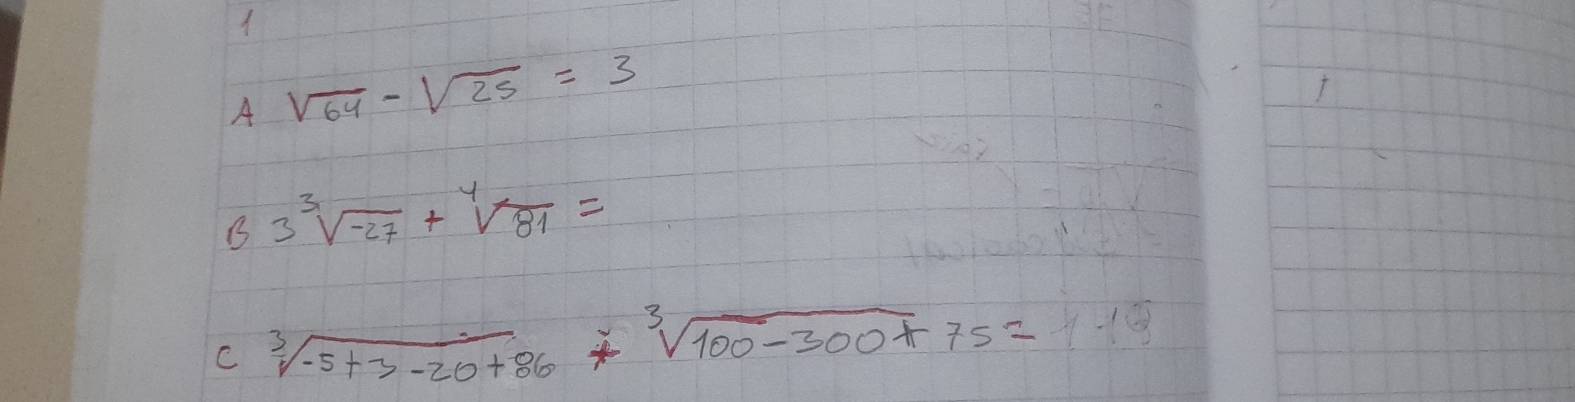 1
A √64 - √25 = 3
B 3 ∛-27 + ∜81 =
C ∛-5+3-20+86 + ∛100-300+75 =